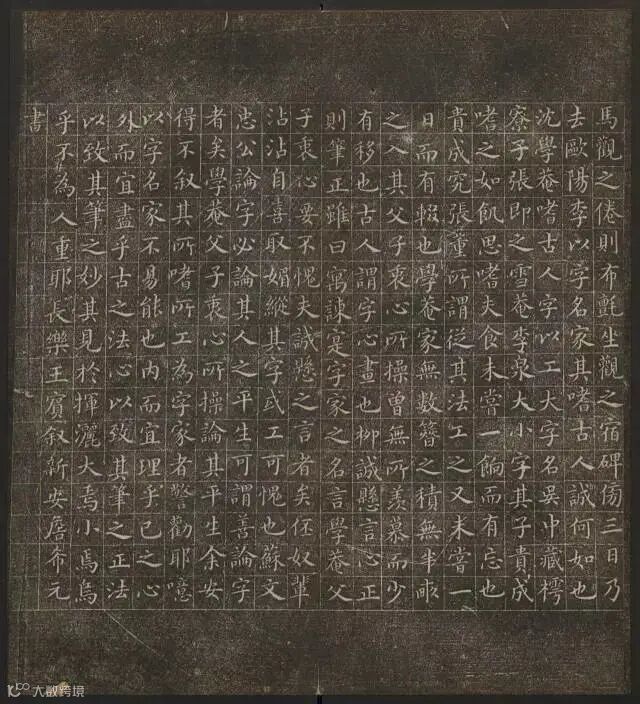 馬觀之倦則布氈坐觀之宿碑傍三日乃
去歐陽李以字名家其嗜古人誠何如也
沈學菴嗜古人字以工大字名吳中藏樗
寮子張即之雪菴李泉大小字其子貴成
嗜之如飢思嗜夫食未嘗一餉而有忘也
貴成究張董所謂從其法工之又未嘗一
日而有輟也學菴家無數簪之積無半畝
之入其父子衷心所操曾無所羨慕而少
有移也古人謂字心畫也柳誠懸言心正
則筆正雖曰寓諫寔字家之名言學菴父
子衷心要不愧夫誠懸之言者矣伾奴輩
沾沾自喜取媚縱其字或工可愧也蘇文
忠公論字必論其人之平生可謂善論字
者矣學菴父子衷心所操論其平生余安
得不叙其所嗜所工為字家者警勸耶噫
以字名家不易能也內而宜理乎已之心
外而宜盡乎古之法心以致其筆之正法
以致其筆之妙其見於揮灑大焉小焉烏
乎不為人重耶長樂王賓叙新安詹希元
書
大数跨境